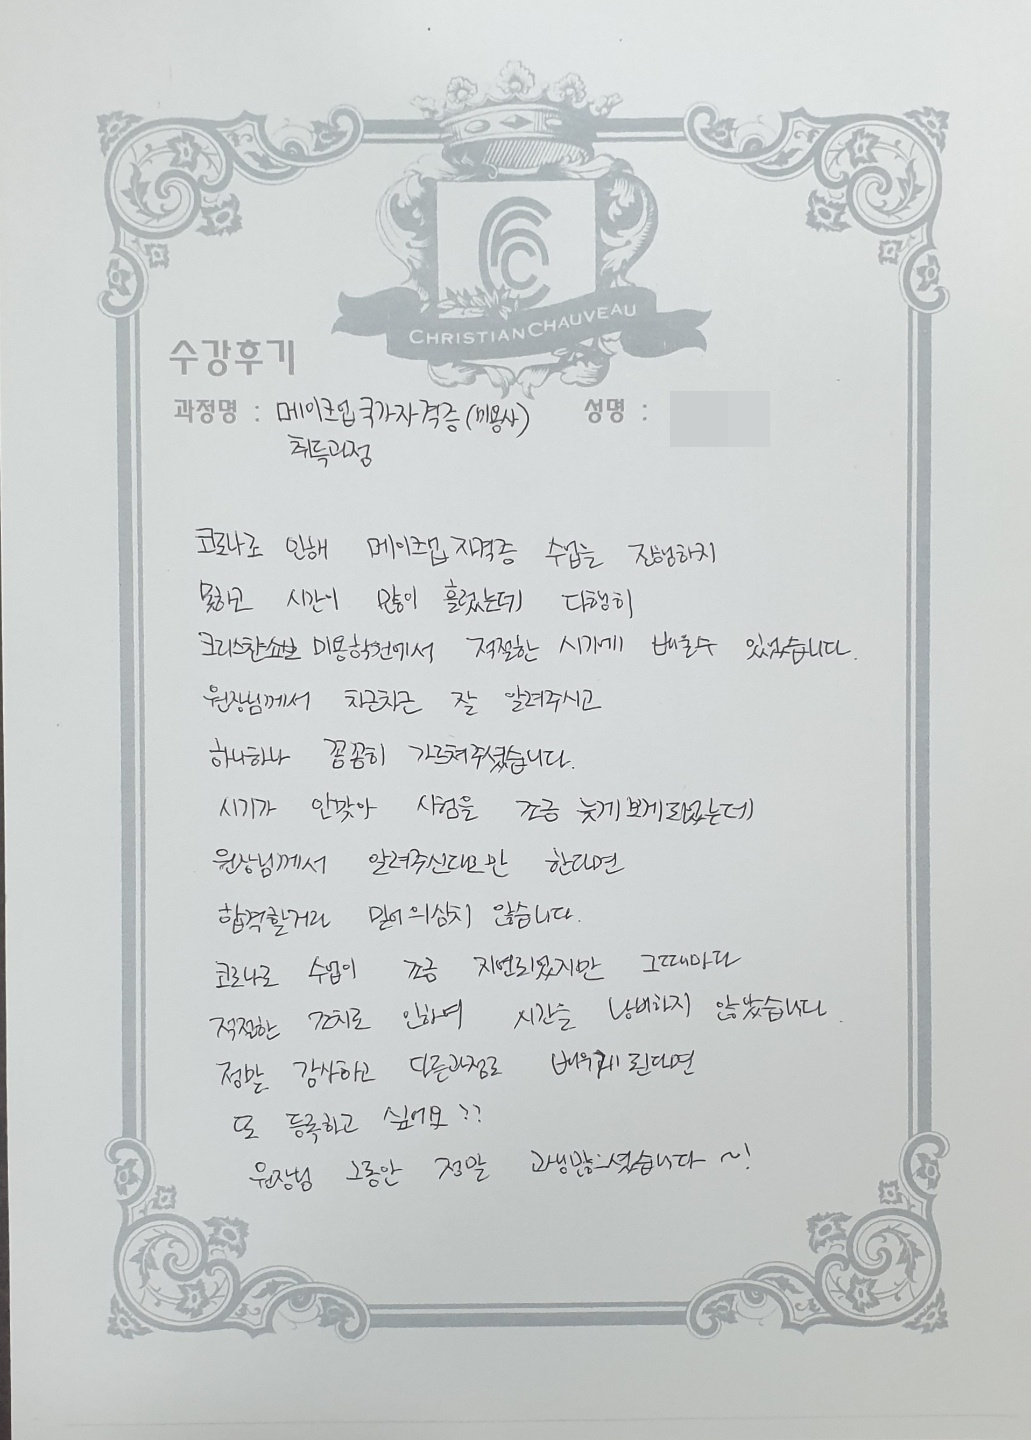 CHRISTIAN CHAUVEAU
수강후기
과정명 : 메이크업 국가자격증(미용사) 성명 :
취득과정
코로나로 인해 메이크업 자격증 수업을 진행하지
못하고 시간이 많이 흘렀는데 다행히
크리스챤쇼보 미용학원에서 적절한 시기에 배울수 있었습니다.
원장님께서 차근차근 잘 알려주시고
하나하나 꼼꼼히 가르쳐주셨습니다.
시기가 안맞아 시험을 조금 늦게 보게되었는데
원장님께서 알려주신대로만 한다면
합격할거라 믿어 의심치 않습니다.
코로나로 수업이 조금 지연되었지만 그때마다
적절한 조치로 인하여 시간을 낭비하지 않았습니다.
정말 감사하고 다른과정도 배우게 된다면
또 등록하고 싶어요??
원장님 그동안 정말 고생많으셨습니다~!